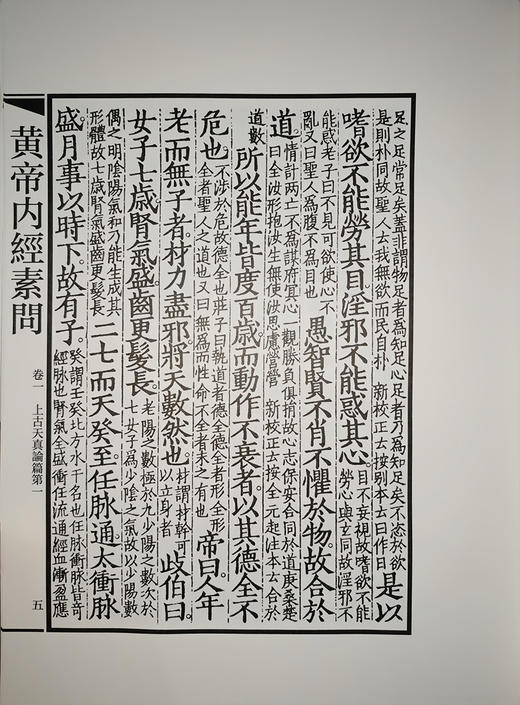 足之足常足矣蓋非謂物足者為知足心足者乃為知足矣不恣於欲
是則朴同故聖人云我無欲而民自朴 新校正云按别本云日作日
是以
嗜欲不能勞其目。淫邪不能惑其心。
目不妄視故嗜欲不能
勞心與玄同故淫邪不
能惑老子曰不見可欲使心不
亂又曰聖人為腹不為目也
愚智賢不肖不懼於物。故合於
道。
情計兩亡不為謀府冥心一觀勝負俱捐故心志保安合同於道庚桑楚
曰全汝形抱汝生無使汝思慮營營 新校正云按全元起注本云合於
道數
所以能年皆度百歲而動作不衰者。以其德全不
危也。
不涉於危故德全也莊子曰執道者德全德全者形全形
全者聖人之道也又曰無為而性命不全者未之有也
帝曰。人年
老而無子者。材力盡邪。將天數然也。
材謂材幹可
以立身者
歧伯曰。
女子七歲。腎氣盛。齒更髮長。
老陽之數極於九少陽之數次於
七女子為少陰之氣故以少陽數
偶之明陰陽氣和乃能生成其
形體故七歲腎氣盛齒更髮長
二七而天癸至。任脉通。太衝脉
盛。月事以時下。故有子。
癸謂壬癸北方水干名也任脉衝脉皆奇
經脉也腎氣全盛衝任流通經血漸盈應
黃帝内經素問
卷一 上古天真論篇第一
五